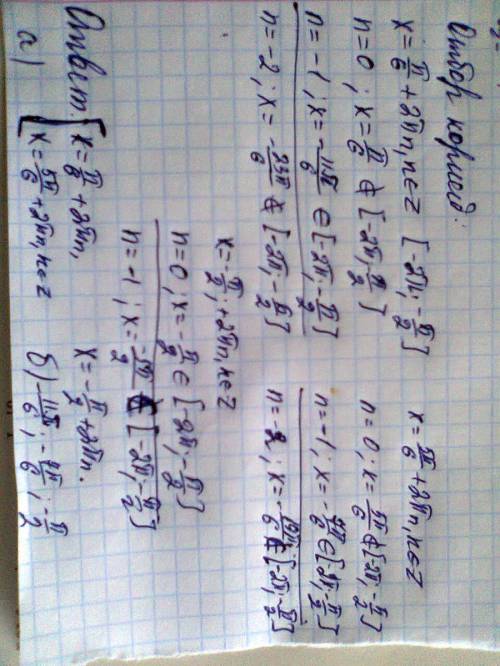 Отбор корней:
x = π/6 + 2πn, n∈z [-2π; -π/2]
n=0; x = π/6 ∉ [-2π; π/2]
n=-1; x = -11π/6 ∈ [-2π; -π/2]
n=-2; x = -23π/6 ∉ [-2π; -π/2]
x = 5π/6 + 2πn, n∈z
n=0, x = 5π/6 ∉ [-2π; -π/2]
n=-1; x = -7π/6 ∈ [-2π; -π/2]
n=-2; x = -19π/6 ∉ [-2π; -π/2]
x = -π/2; +2πn, n∈z
n=0, x = -π/2 ∈ [-2π; -π/2]
n=-1; x = -5π/2 ∉ [-2π; -π/2]
Ответ:
а) [ x = π/6 + 2πn,
x = 5π/6 + 2πn, n∈z
x = -π/2 + 2πn.
б) -11π/6; -7π/6; -π/2